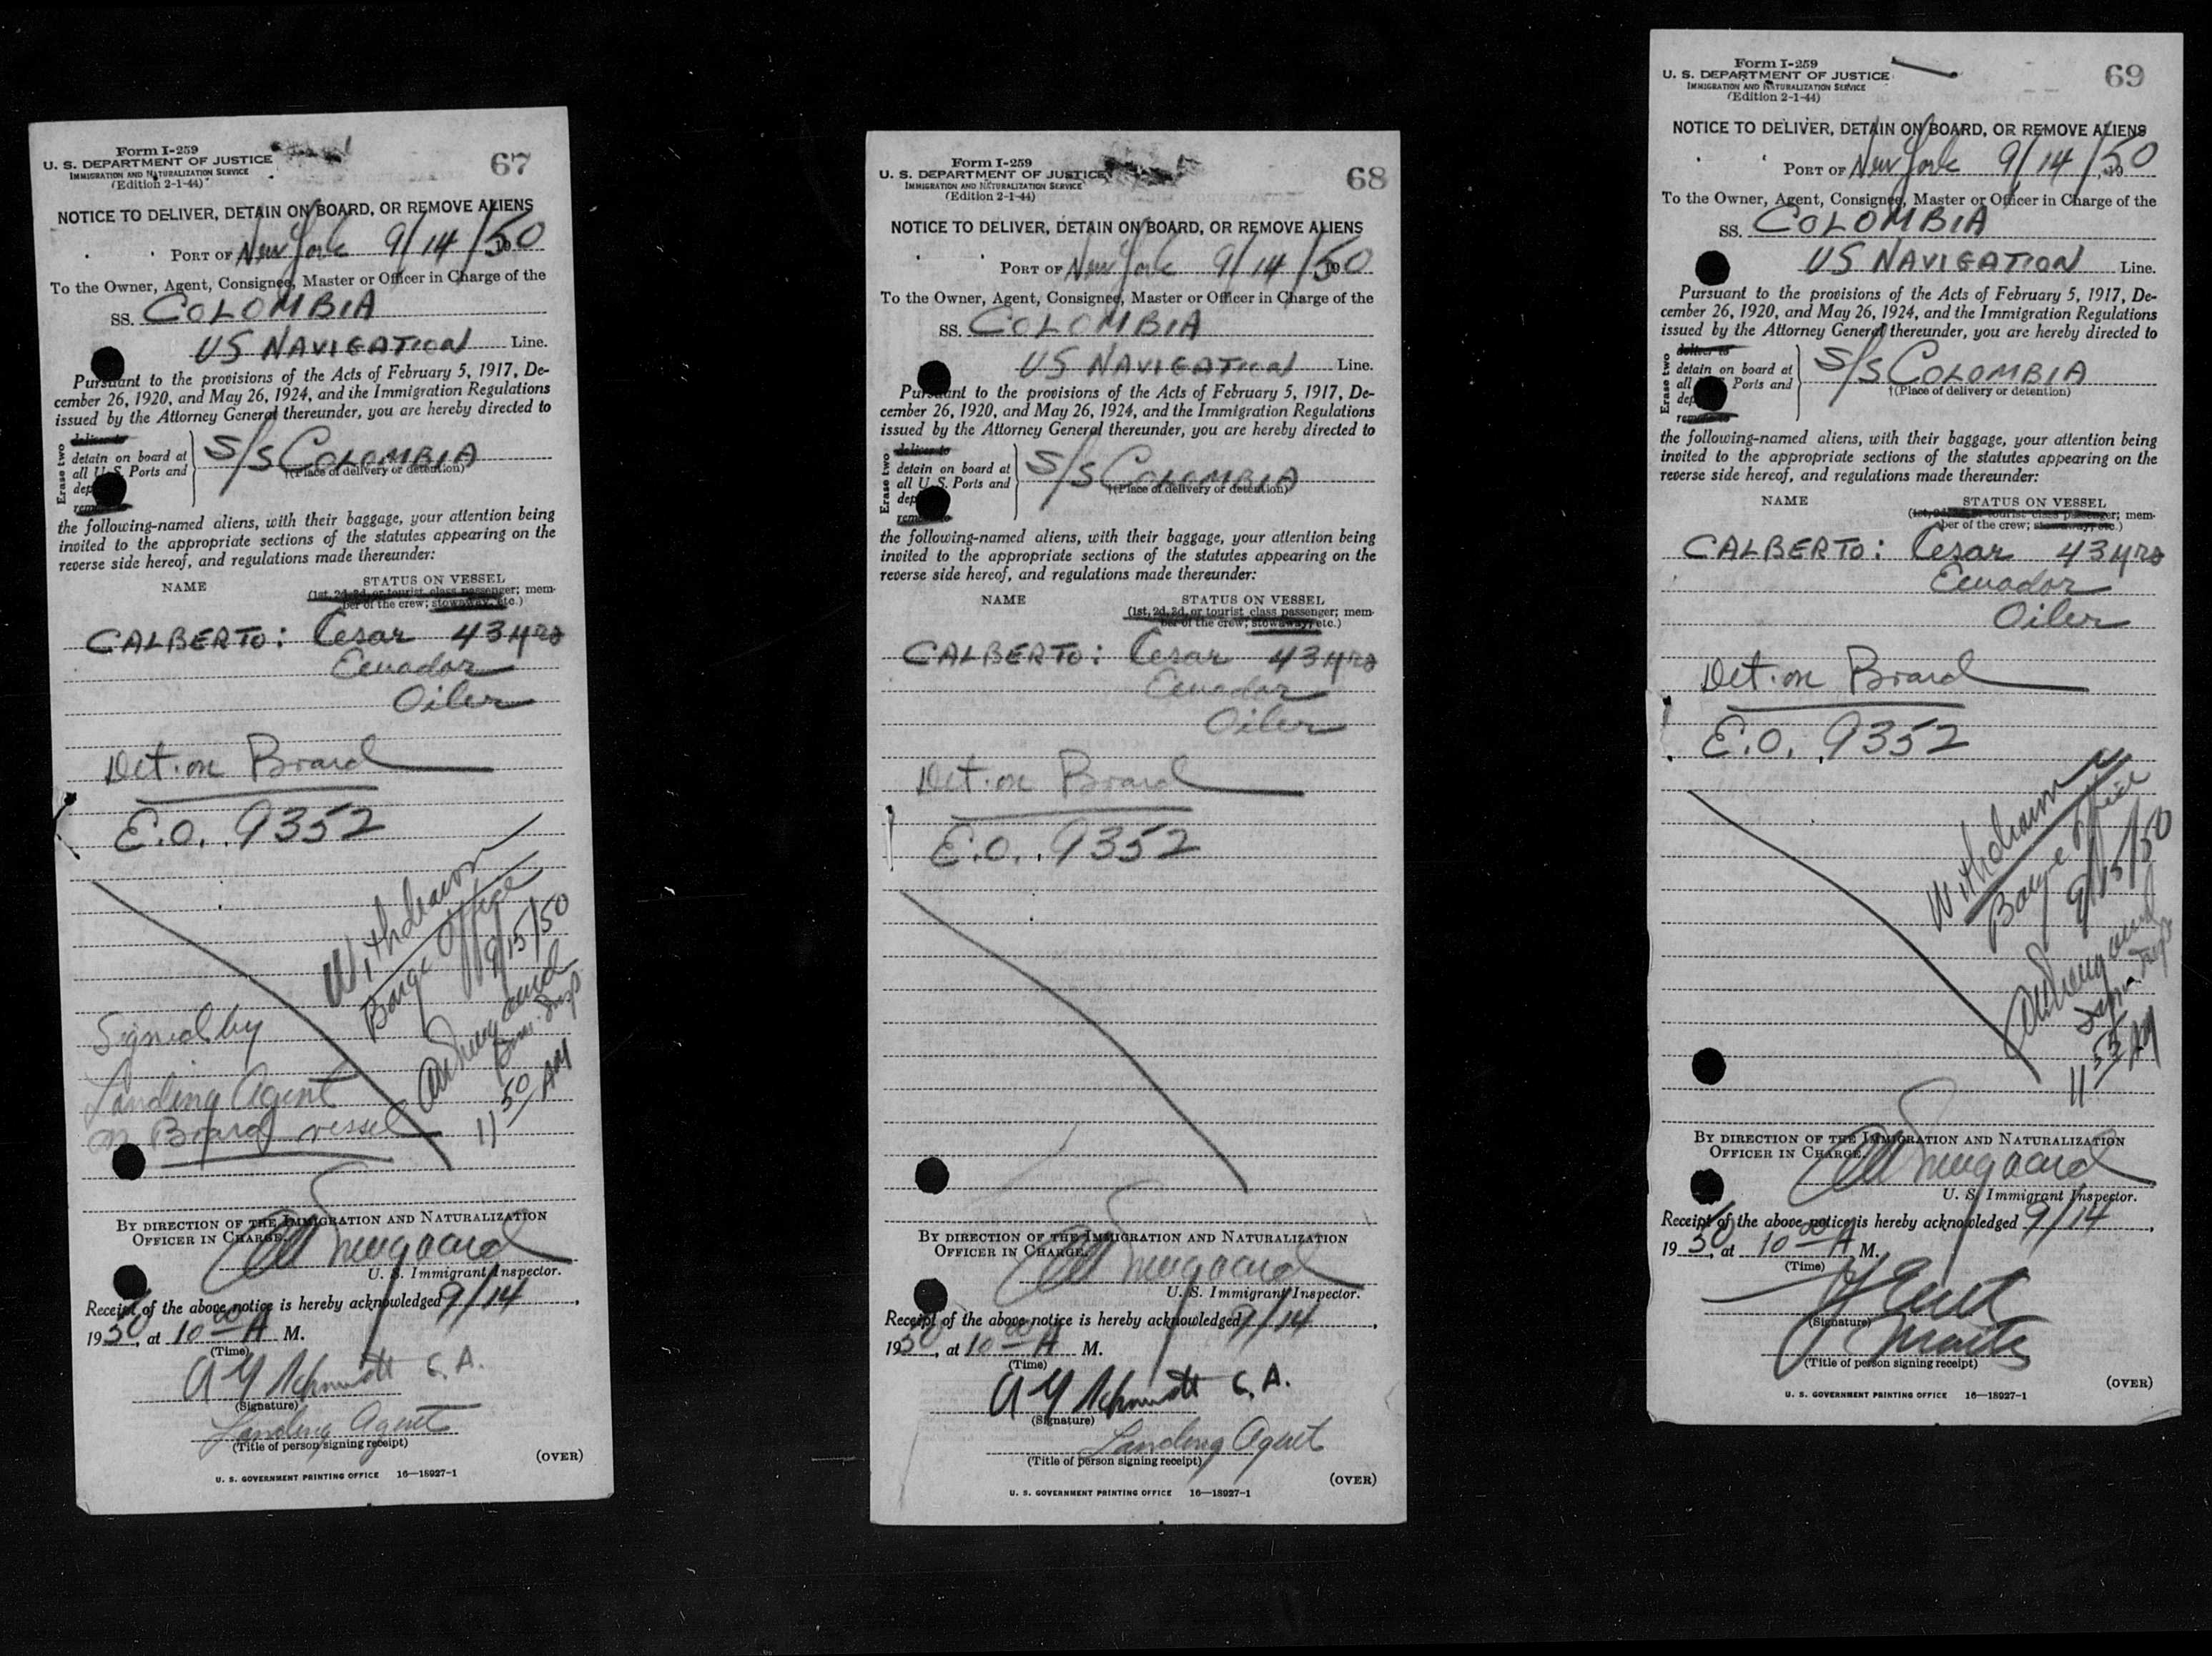 Form I-259
U. S. DEPARTMENT OF JUSTICE
IMMIGRATION AND NATURALIZATION SERVICE
(Edition 2-1-44)
67
NOTICE TO DELIVER, DETAIN ON BOARD, OR REMOVE ALIENS
PORT OF New York 9/14/50
To the Owner, Agent, Consignee, Master or Officer in Charge of the
SS. COLOMBIA
US NAVIGATION Line.
Pursuant to the provisions of the Acts of February 5, 1917, De-
cember 26, 1920, and May 26, 1924, and the Immigration Regulations
issued by the Attorney General thereunder, you are hereby directed to
Erase two
deliver to
detain on board at
all U. S. Ports and
dep
remove to
S/S COLOMBIA
†(Place of delivery or detention)
the following-named aliens, with their baggage, your attention being
invited to the appropriate sections of the statutes appearing on the
reverse side hereof, and regulations made thereunder:
NAME
STATUS ON VESSEL
(1st, 2d, 3d, or tourist class passenger; mem-
ber of the crew; stowaway, etc.)
CALBERTO: Cesar 43 yrs
Ecuador
Oiler
Det. on Board
E.O. 9352
Withdrawn
Barge Office
9/15/50
11 50 AM
Signed by
Landing Agent
on Board vessel
BY DIRECTION OF THE IMMIGRATION AND NATURALIZATION
OFFICER IN CHARGE.
U. S. Immigrant Inspector.
Receipt of the above notice is hereby acknowledged 9/14,
1950, at 10 00 A M.
(Time)
A Y Schmidt C. A.
(Signature)
Landing Agent
(Title of person signing receipt)
(OVER)
U. S. GOVERNMENT PRINTING OFFICE 16—18927-1
Form I-259
U. S. DEPARTMENT OF JUSTICE
IMMIGRATION AND NATURALIZATION SERVICE
(Edition 2-1-44)
68
NOTICE TO DELIVER, DETAIN ON BOARD, OR REMOVE ALIENS
PORT OF New York 9/14/50
To the Owner, Agent, Consignee, Master or Officer in Charge of the
SS. COLOMBIA
US NAVIGATION Line.
Pursuant to the provisions of the Acts of February 5, 1917, De-
cember 26, 1920, and May 26, 1924, and the Immigration Regulations
issued by the Attorney General thereunder, you are hereby directed to
Erase two
deliver to
detain on board at
all U. S. Ports and
dep
remove to
S/S COLOMBIA
†(Place of delivery or detention)
the following-named aliens, with their baggage, your attention being
invited to the appropriate sections of the statutes appearing on the
reverse side hereof, and regulations made thereunder:
NAME
STATUS ON VESSEL
(1st, 2d, 3d, or tourist class passenger; mem-
ber of the crew; stowaway, etc.)
CALBERTO: Cesar 43 yrs
Ecuador
Oiler
Det. on Board
E.O. 9352
BY DIRECTION OF THE IMMIGRATION AND NATURALIZATION
OFFICER IN CHARGE.
U. S. Immigrant Inspector.
Receipt of the above notice is hereby acknowledged 9/14,
1950, at 10 00 A M.
(Time)
A Y Schmidt C. A.
(Signature)
Landing Agent
(Title of person signing receipt)
(OVER)
U. S. GOVERNMENT PRINTING OFFICE 16—18927-1
Form I-259
U. S. DEPARTMENT OF JUSTICE
IMMIGRATION AND NATURALIZATION SERVICE
(Edition 2-1-44)
69
NOTICE TO DELIVER, DETAIN ON BOARD, OR REMOVE ALIENS
PORT OF New York 9/14/50
To the Owner, Agent, Consignee, Master or Officer in Charge of the
SS. COLOMBIA
US NAVIGATION Line.
Pursuant to the provisions of the Acts of February 5, 1917, De-
cember 26, 1920, and May 26, 1924, and the Immigration Regulations
issued by the Attorney General thereunder, you are hereby directed to
Erase two
deliver to
detain on board at
all Ports and
dep
remove to
S/S COLOMBIA
†(Place of delivery or detention)
the following-named aliens, with their baggage, your attention being
invited to the appropriate sections of the statutes appearing on the
reverse side hereof, and regulations made thereunder:
NAME
STATUS ON VESSEL
(1st, 2d, 3d, or tourist class passenger; mem-
ber of the crew; stowaway, etc.)
CALBERTO: Cesar 43 yrs
Ecuador
Oiler
Det. on Board
E.O. 9352
Withdrawn
Barge Office
9/15/50
11 55 AM
BY DIRECTION OF THE IMMIGRATION AND NATURALIZATION
OFFICER IN CHARGE.
U. S. Immigrant Inspector.
Receipt of the above notice is hereby acknowledged 9/14,
1950, at 10 00 A M.
(Time)
(Signature)
(Title of person signing receipt)
(OVER)
U. S. GOVERNMENT PRINTING OFFICE 16—18927-1